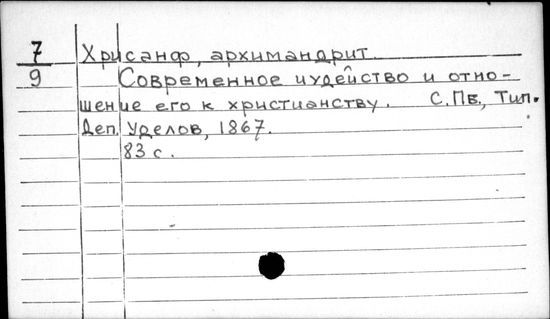 7 Хрисанф, архимандрит.
9 Современное иудейство и отно-
шение его к христианству. С.Пб., Тип.
Деп. Уделов, 1867.
83 с.